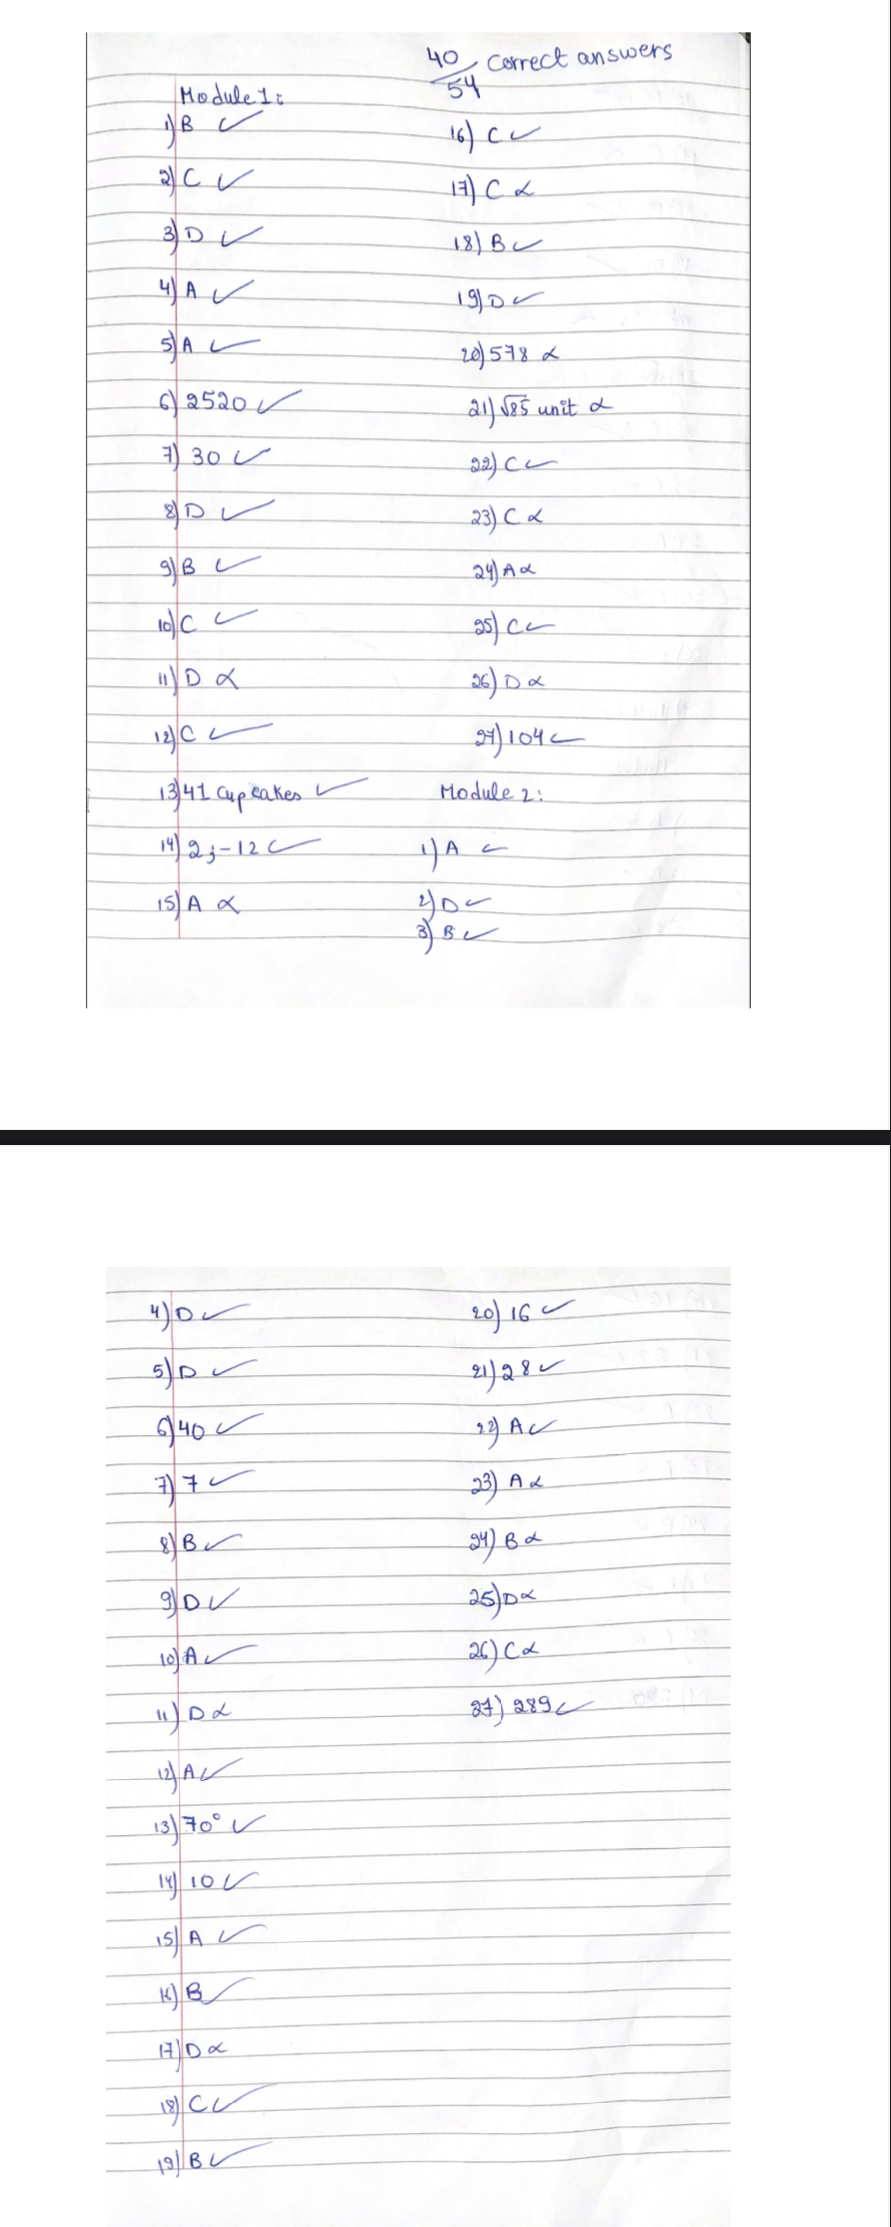 40/54 correct answers
Module 1:
1) B ✓
2) C ✓
3) D ✓
4) A ✓
5) A ✓
6) 2520 ✓
7) 30 ✓
8) D ✓
9) B ✓
10) C ✓
11) D ∝
12) C ✓
13) 41 cupcakes ✓
14) 2; -12 ✓
15) A ∝
16) C ✓
17) C ∝
18) B ✓
19) D ✓
20) 578 ∝
21) √85 unit ∝
22) C ✓
23) C ∝
24) A ∝
25) C ✓
26) D ∝
27) 104 ✓
Module 2:
1) A ✓
2) D ✓
3) B ✓
4) D ✓
5) D ✓
6) 40 ✓
7) 7 ✓
8) B ✓
9) D ✓
10) A ✓
11) D ∝
12) A ✓
13) 70° ✓
14) 10 ✓
15) A ✓
16) B ✓
17) D ∝
18) C ✓
19) B ✓
20) 16 ✓
21) 28 ✓
22) A ✓
23) A ∝
24) B ∝
25) D ∝
26) C ∝
27) 289 ✓